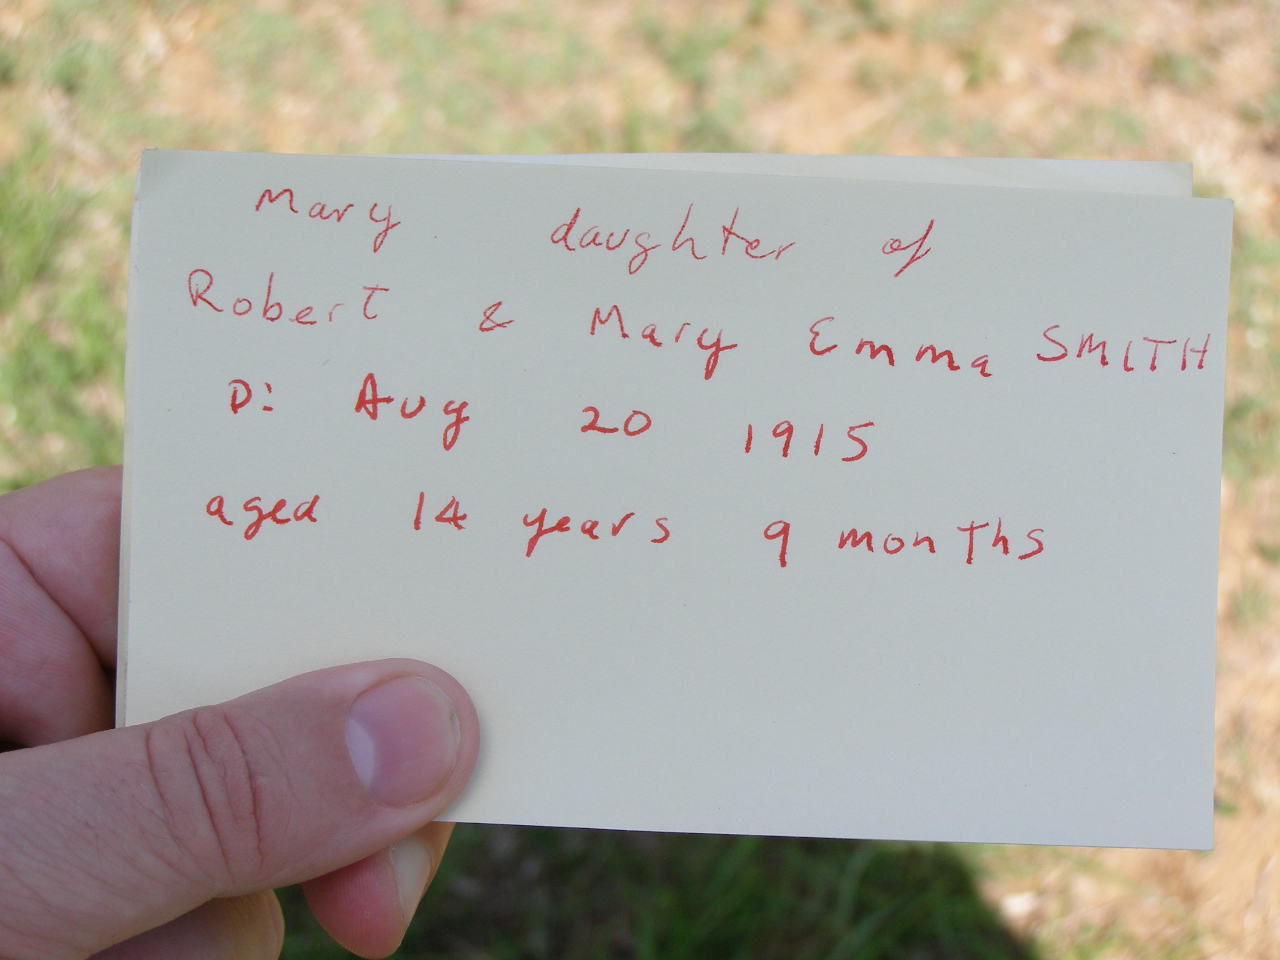 Mary daughter of
Robert & Mary Emma SMITH
D: Aug 20 1915
aged 14 years 9 months